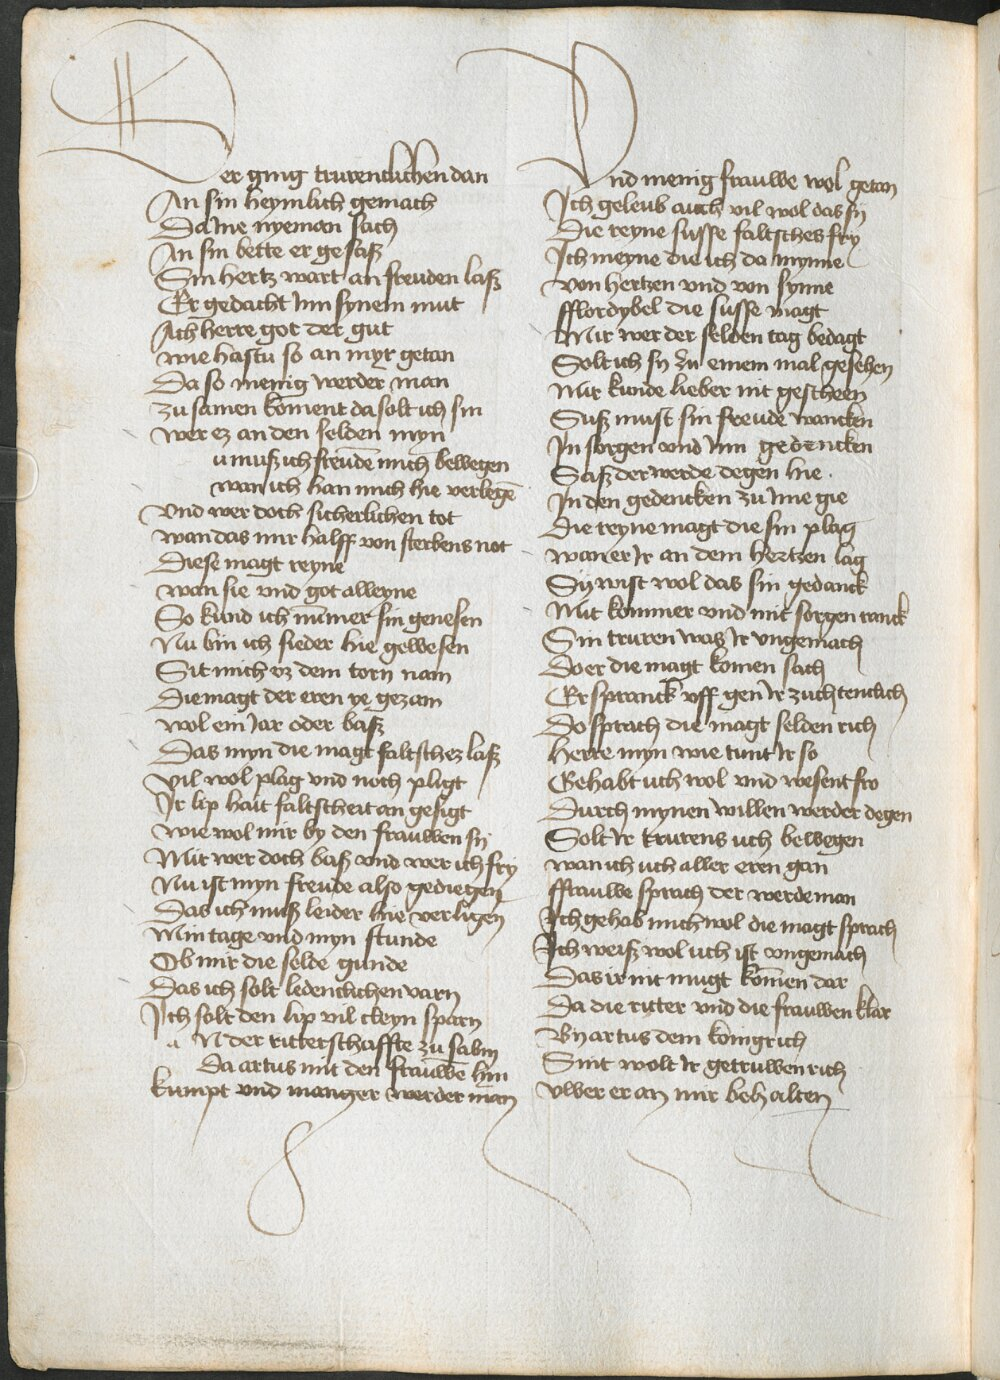 Er ging trurentlichen dan
An sin heymlich gemach
Da Ine nyeman sach
An sin bette er gesaß
Sin hertz wart an freuden laß
Er gedacht Inn synem mut
Ach herre got der gut
wie hastu so an myr getan
Da so menig werder man
zu samen koment da solt ich sin
wer ez an den selden myn
u muß ich freude mich bewegen
wan ich han mich hie verlegē
Vnd wer doch sicherlichen tot
wan das mir halff von sterbens not
Diese magt reyne
wan sie vnd got alleyne
So kund ich nūmer sin genesen
Nu bin ich sieder hie gewesen
Sit mich vz dem torn nam
Die magt der eren ye gezam
wol ein Jar oder baß
Das myn die magt faltschez laß
vil wol plag vnd noch pligt
Ir lip hait faltscheit an gesigt
wie wol mir by den frauwen sy
Mir wer doch baß vnd wer ich fry
Nu ist myn freude also gediegen
Das ich muß leider hie verligen
Min tage vnd myn stunde
Ob mir die selde gunde
Das ich solt ledenclichen varn
Ich solt den lip vil cleyn sparn
a N der ritterschaffte zu sabin
Da artus mit den frauwē hin
kumpt vnd manger werder man
Vnd menig frauwe wol getan
Ich geleub auch vil wol das sy
Die reyne susse faltsches fry
Ich meyne die ich da mynne
von hertzen vnd von synne
fflordybel die susse magt
Mir wer der selben tag bedagt
Solt ich sy zu einem mal gesehen
Mir kunde lieber nit gescheen
Suß must sin freude wancken
In sorgen vnd Inn gedencken
Saß der werde degen hie
In den gedencken zu Ime gie
Die reyne magt die sin plag
wan er Ir an dem hertzen lag
Sy wist wol das sin gedanck
Mit kommer vnd mit sorgen ranck
Sin truren was Ir vngemach
Do er die magt komen sach
Er spranck vff gen Ir zuchtenclich
Do sprach die magt selden rich
Herre myn wie tunt Ir so
Gehabt uch wol vnd wesent fro
Durch mynen willen werder degen
Solt Ir trurens uch bewegen
wan ich uch aller eren gan
ffrauwe sprach der werde man
Ich gehab mich wol die magt sprach
Ich weiß wol uch ist vngemach
Das ir nit mugt komen dar
Da die ritter vnd die frauwen klar
By artus dem konigrich
Sint wolt Ir getruwen rich
vwer er an mir behalten